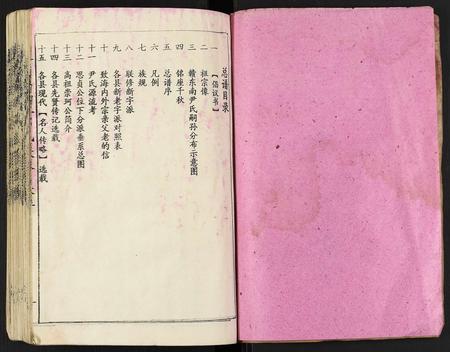 总谱目录
一 【倡议书】
二 祖宗像
三 赣东南尹氏嗣孙分布示意图
四 铭座千秋
五 总谱序
六 凡例
七 族规
八 联修新字派
九 各县新老字派对照表
十 致海内外宗亲父老的信
十一 尹氏源流考
十二 思贞公位下分派垂系总图
十三 高祖崇珂公简介
十四 各县先贤传记选载
十五 各县现代【名人传略】选载